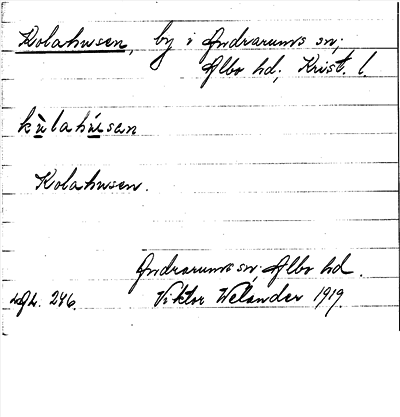 Kolahusen, by i Andrarums sn;
Albo hd; Krist. l.
kùlahúsan
Kolahusen.
Andrarums sn; Albo hd.
Viktor Welander 1919.
246.